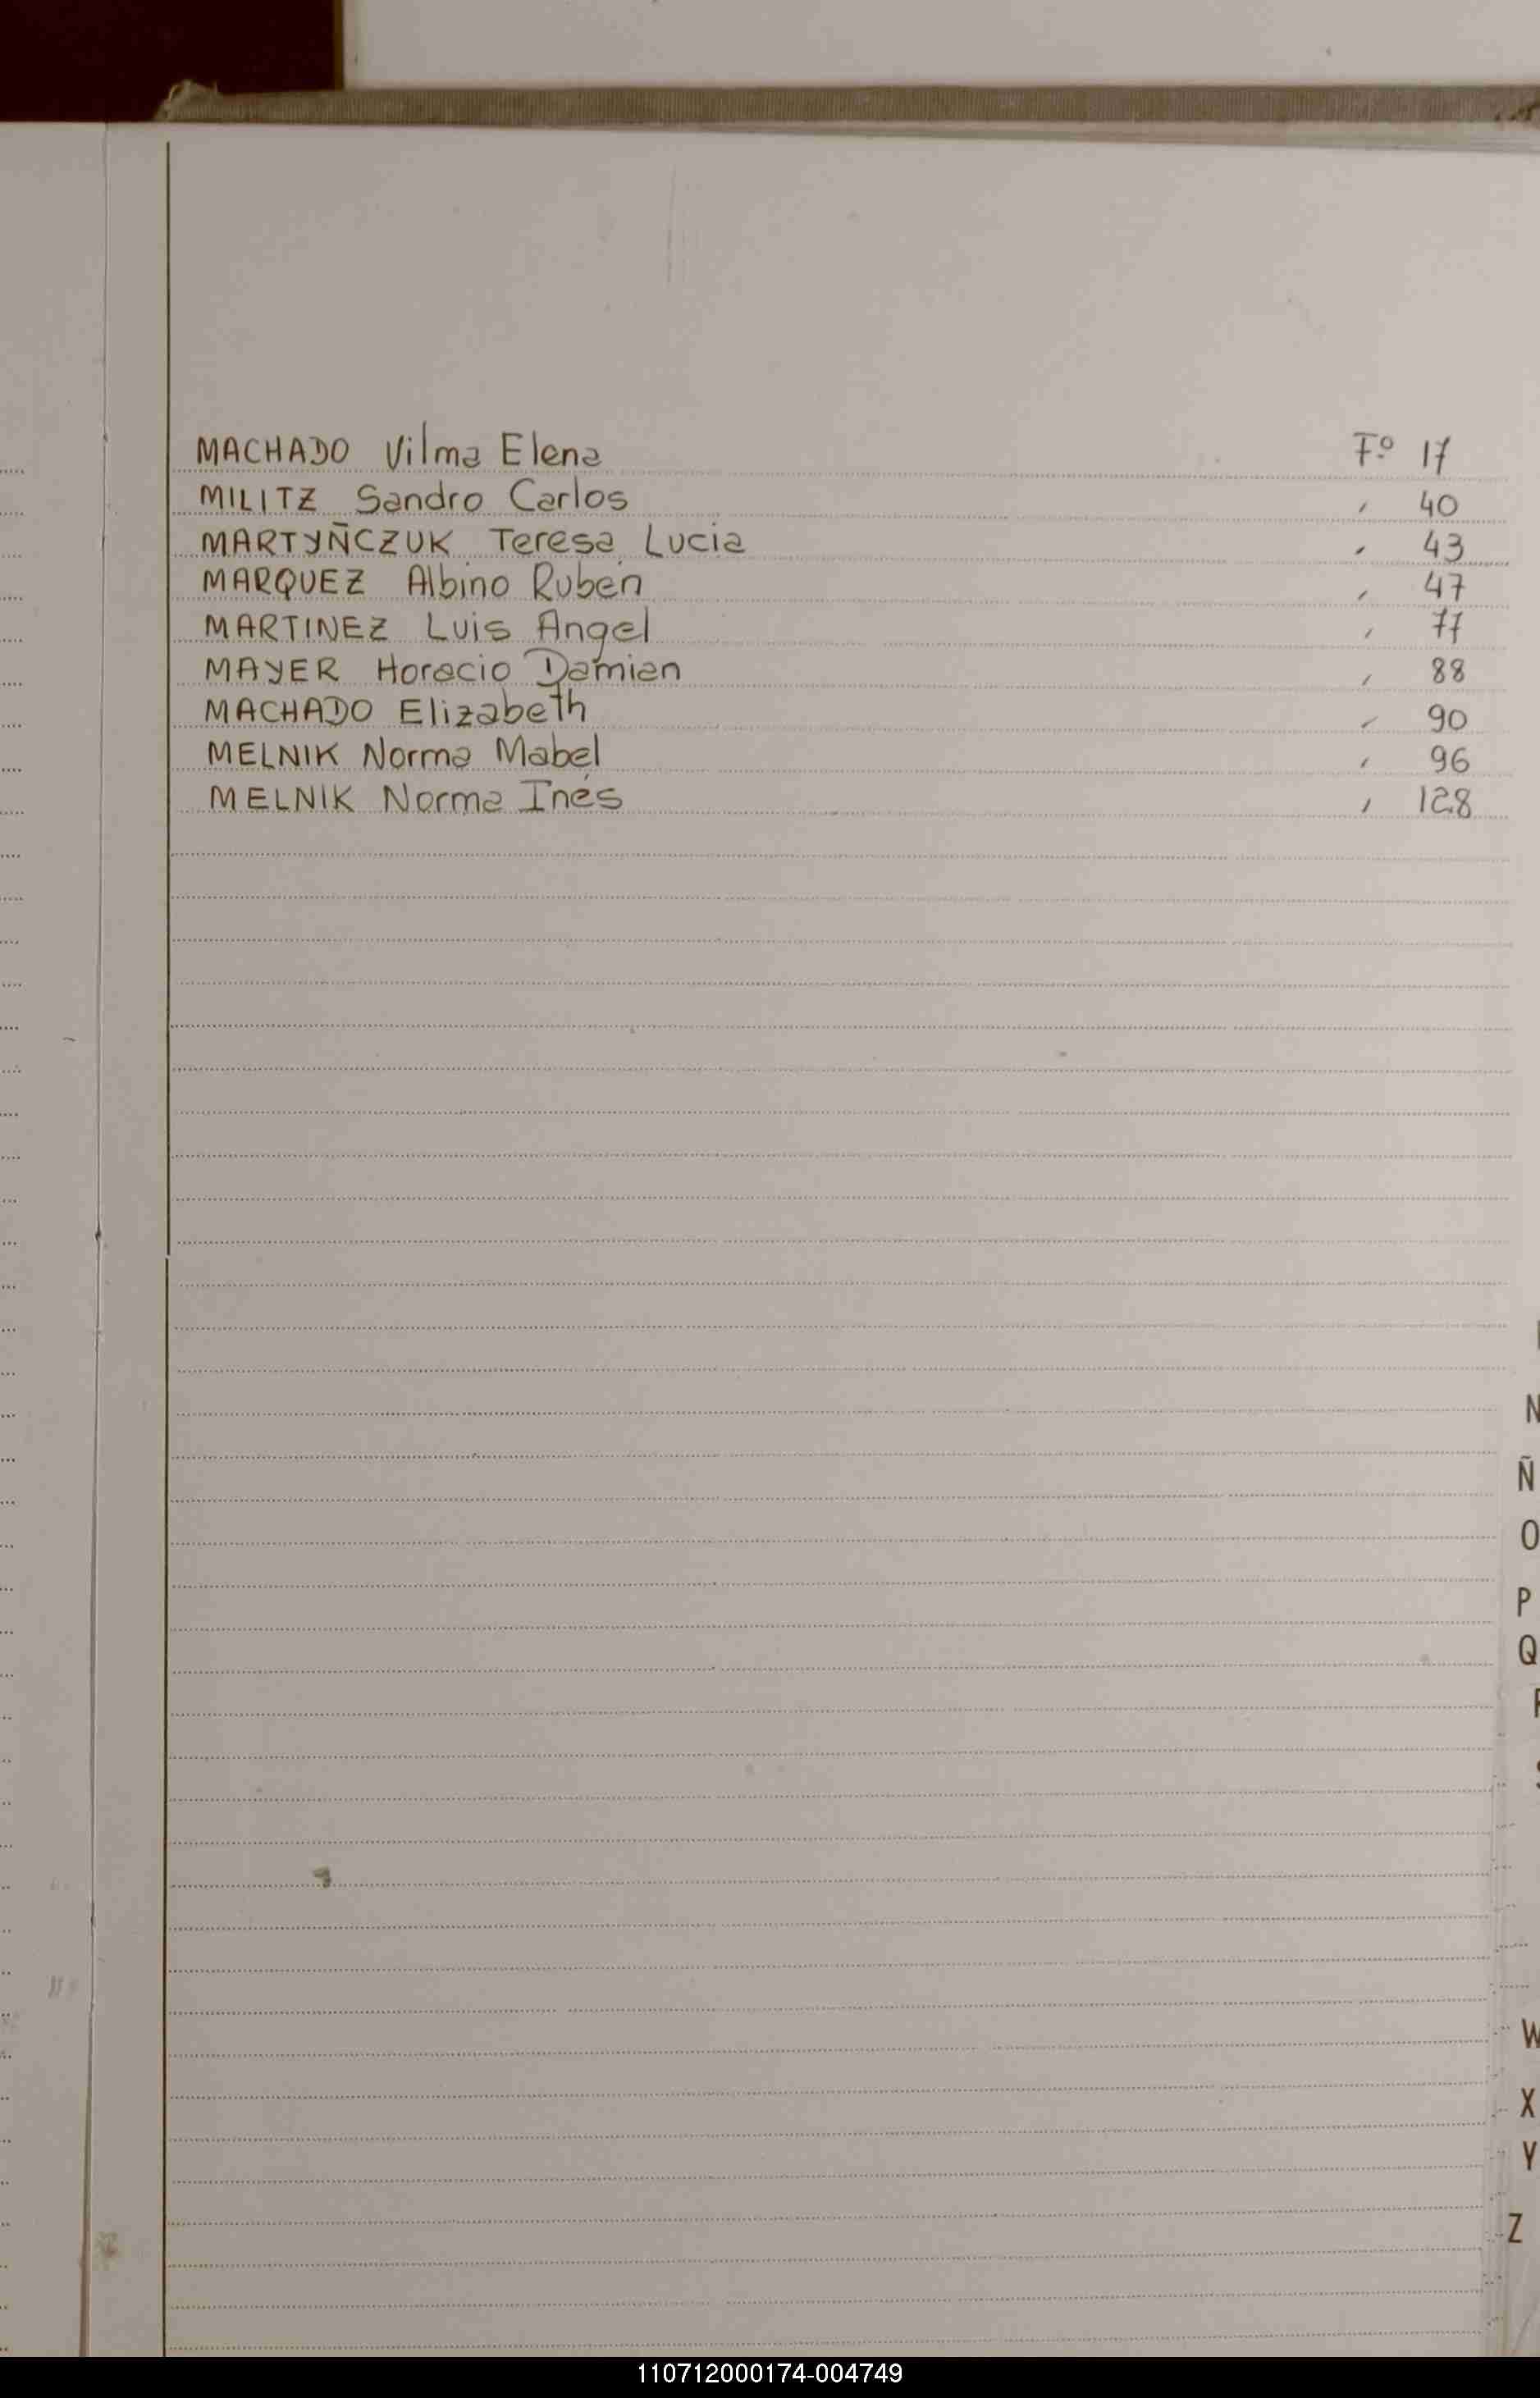 MACHADO Vilma Elena Fº 17
MILITZ Sandro Carlos " 40
MARTYÑCZUK Teresa Lucia " 43
MARQUEZ Albino Rubén " 47
MARTINEZ Luis Angel " 77
MAYER Horacio Damian " 88
MACHADO Elizabeth " 90
MELNIK Norma Mabel " 96
MELNIK Norma Inés " 128
N
Ñ
O
P
Q
W
X
Y
Z
110712000174-004749